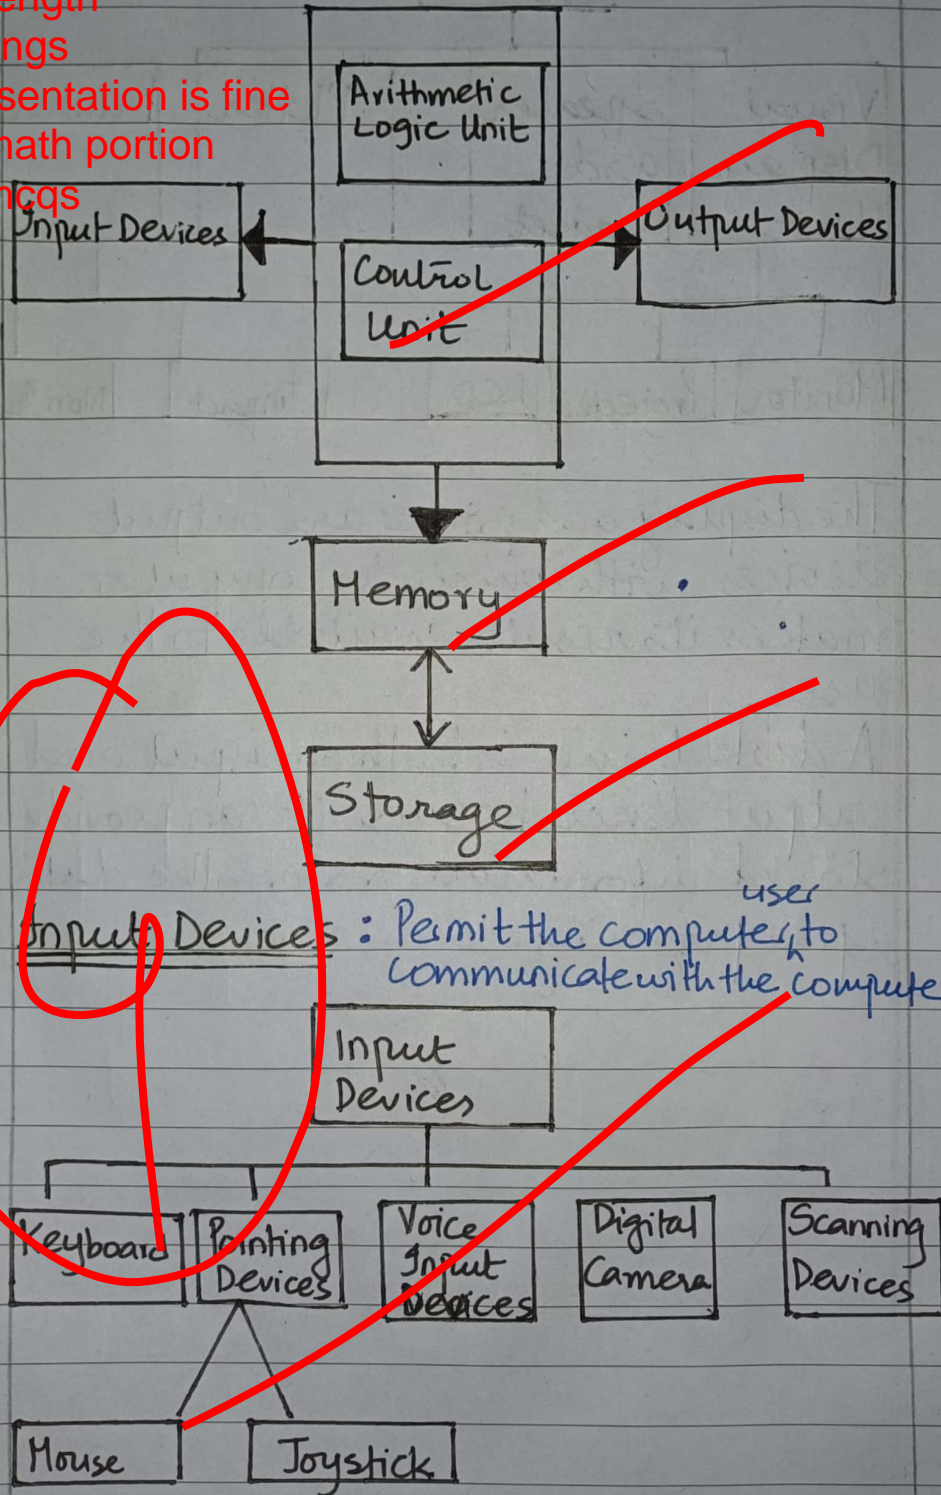 ength
ngs
sentation is fine
math portion
mcqs
Arithmetic
Logic Unit
Input Devices
Output Devices
Control
Unit
Memory
Storage
user
Input Devices : Permit the computer, to
communicate with the compute
Input
Devices
Keyboard
Pointing
Devices
Voice
Input
Devices
Digital
Camera
Scanning
Devices
Mouse
Joystick